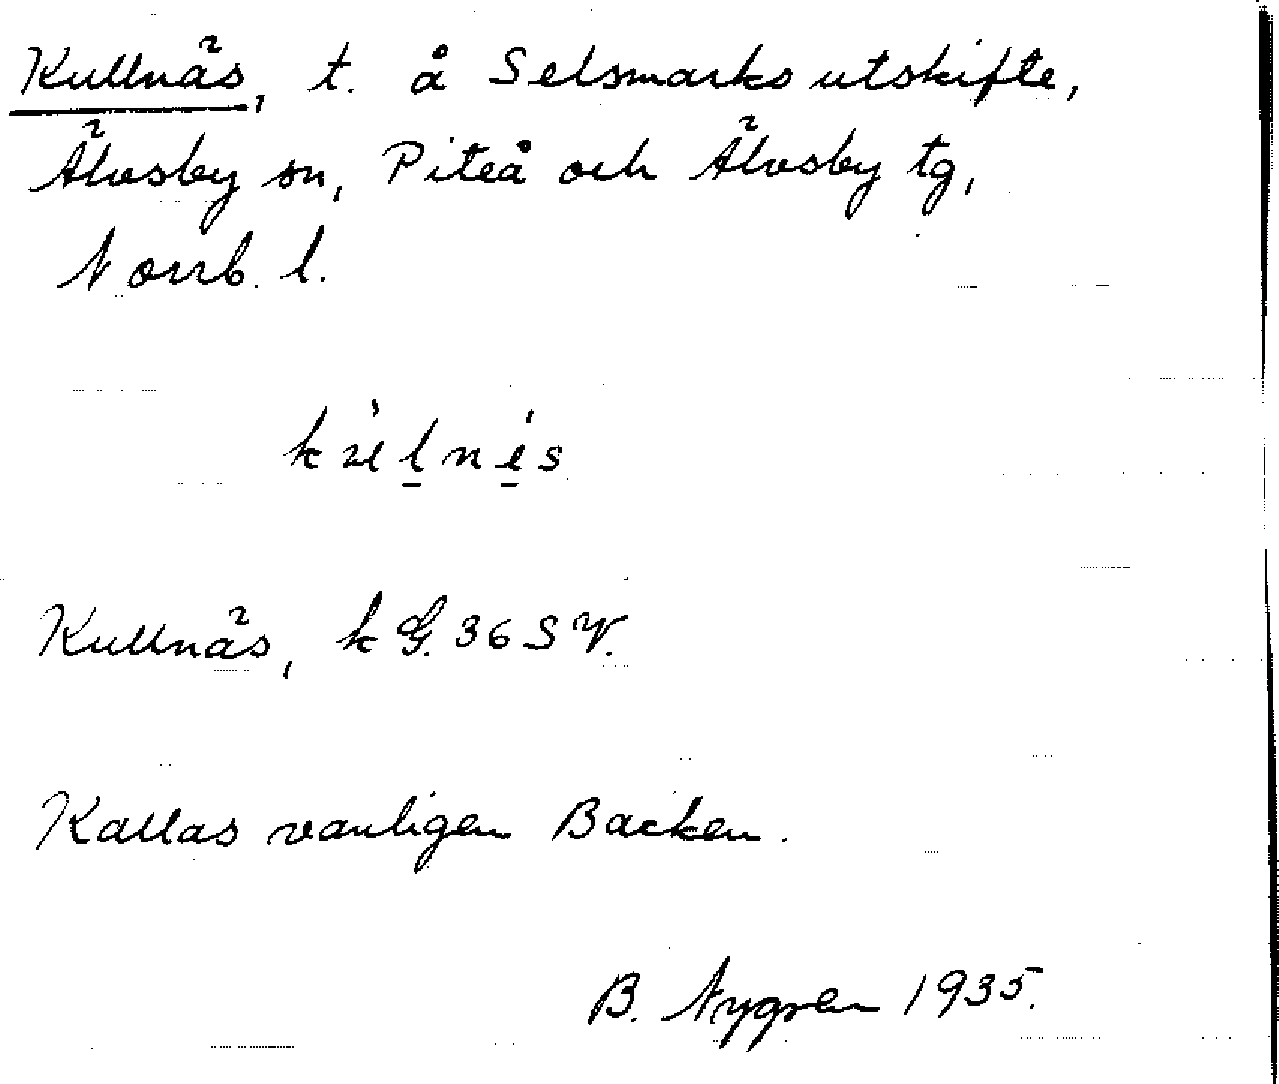 Kullnäs, t. å Selsmarks utskifte,
Älvsby sn, Piteå och Älvsby tg,
Norrb. l.
Kullnäs, k G. 36 SV.
Kallas vanligen Backen.
B. Nygren 1935.